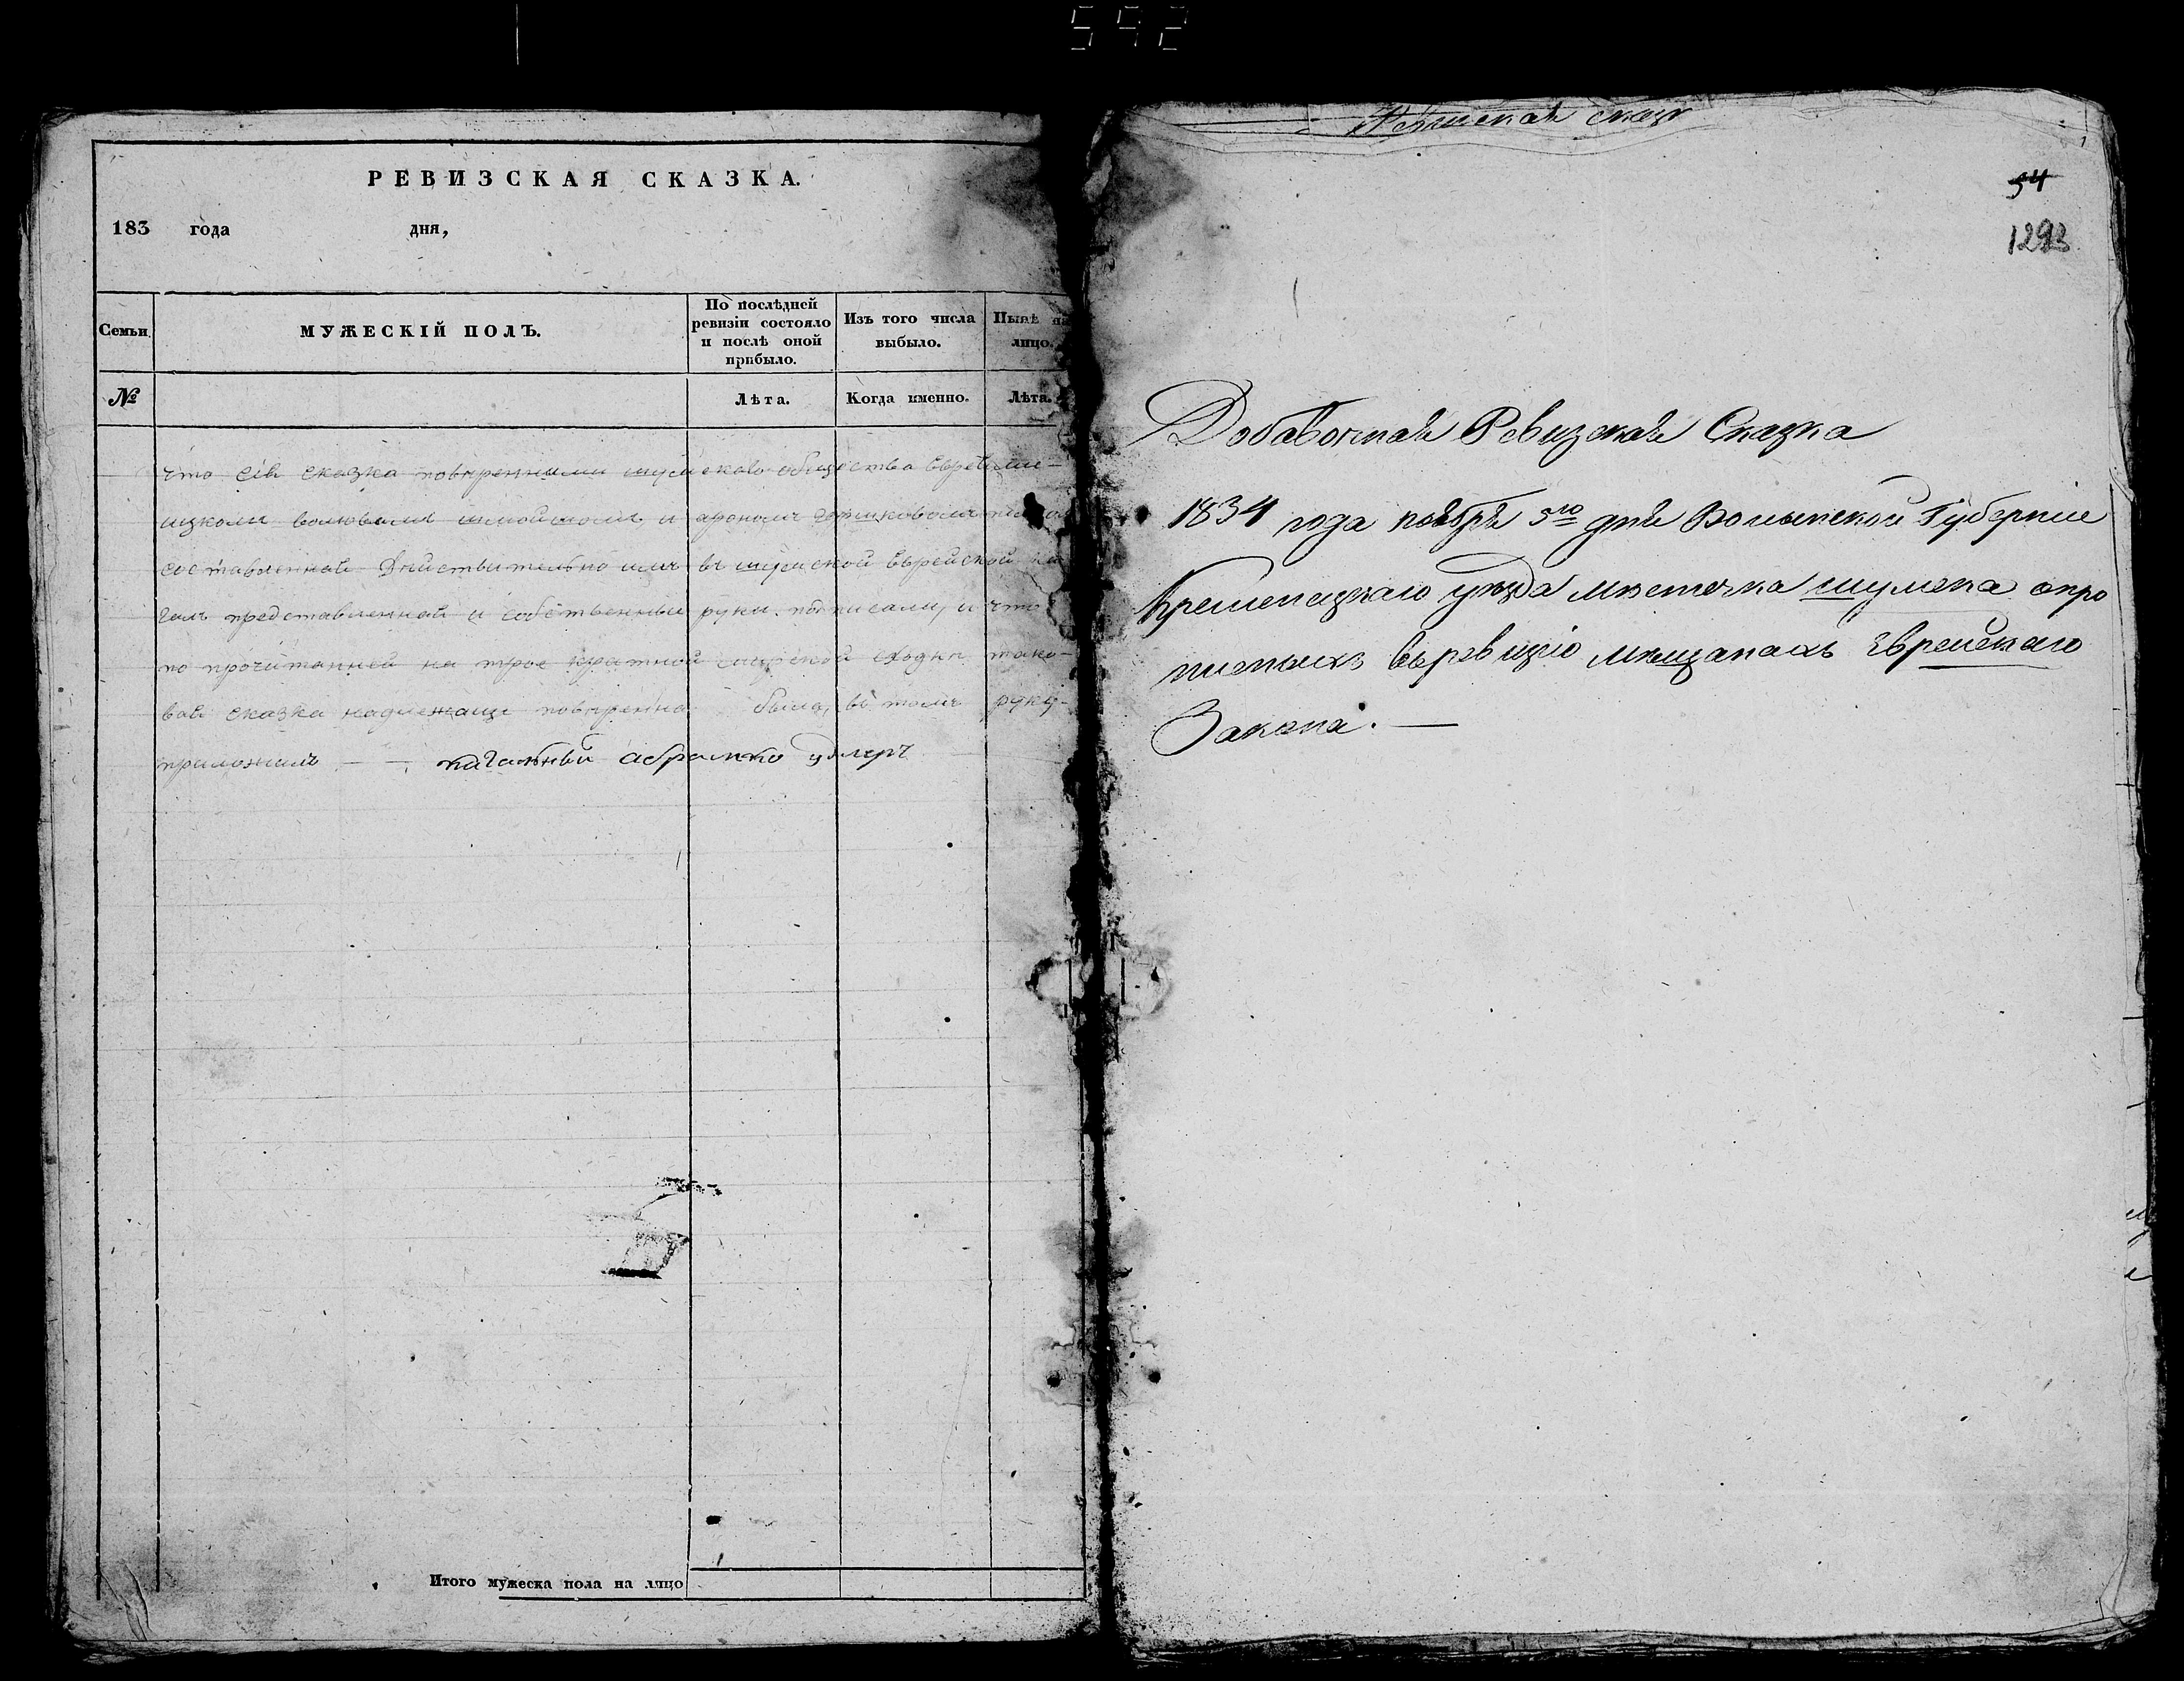 592
РЕВИЗСКАЯ СКАЗКА.
183 года дня,
Семьи
МУЖЕСКІЙ ПОЛЪ.
По послѣдней ревизіи состояло и послѣ оной прибыло.
Изъ того числа выбыло.
Нынѣ на лицо.
№
Лѣта.
Когда именно.
Лѣта.
что сія сказка повѣренными шумскаво общества
и
составленная Дѣйствительно имъ въ шумской Еврейской
представленной и собственныи руки подписали, и что
по прочитанней на трое кратной сходки тако-
вая сказка повѣренна была, въ томъ руку
приложилъ — кагальный абрамко
Итого мужеска пола на лицо
Ревизская сказк
54
1293
Добавочная Ревизская Сказка
1834 года ноября 5го дня Волынской Губерніи
Кременецкаго уезда мѣстечка шумска опро
писныхъ въревизію мѣщанахъ Еврейскаго
Закона. —